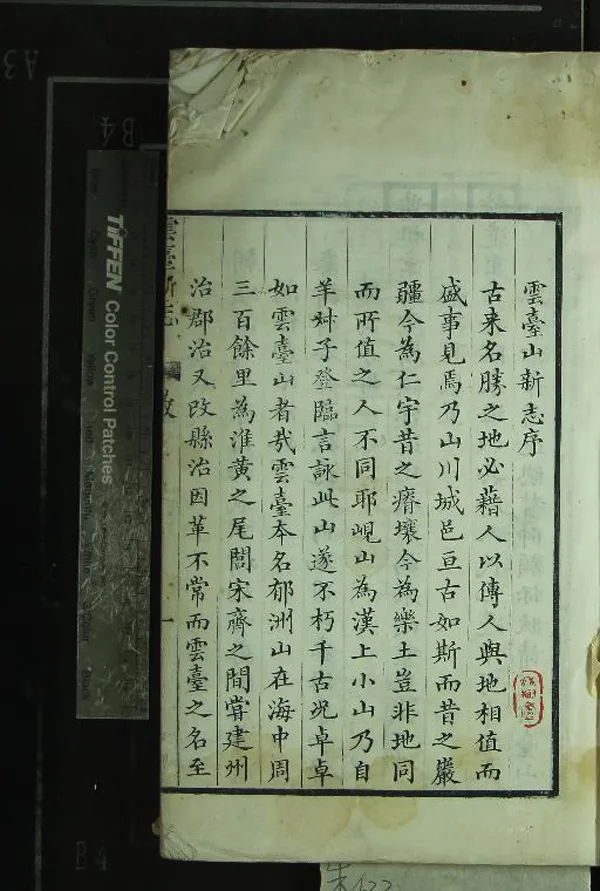 雲臺山新志序
古来名勝之地必藉人以傳人與地相值而
盛事見焉乃山川城邑亘古如斯而昔之巖
疆今為仁宇昔之瘠壤今為樂土豈非地同
而所值之人不同耶峴山為漢上小山乃自
羊叔子登臨言詠此山遂不朽千古况卓卓
如雲臺山者哉雲臺本名郁洲山在海中周
三百餘里為淮黄之尾閭宋齊之間嘗建州
治郡治又改縣治因革不常而雲臺之名至
雲臺新志
一
TIFFEN Color Control Patches
A3
B4
B4